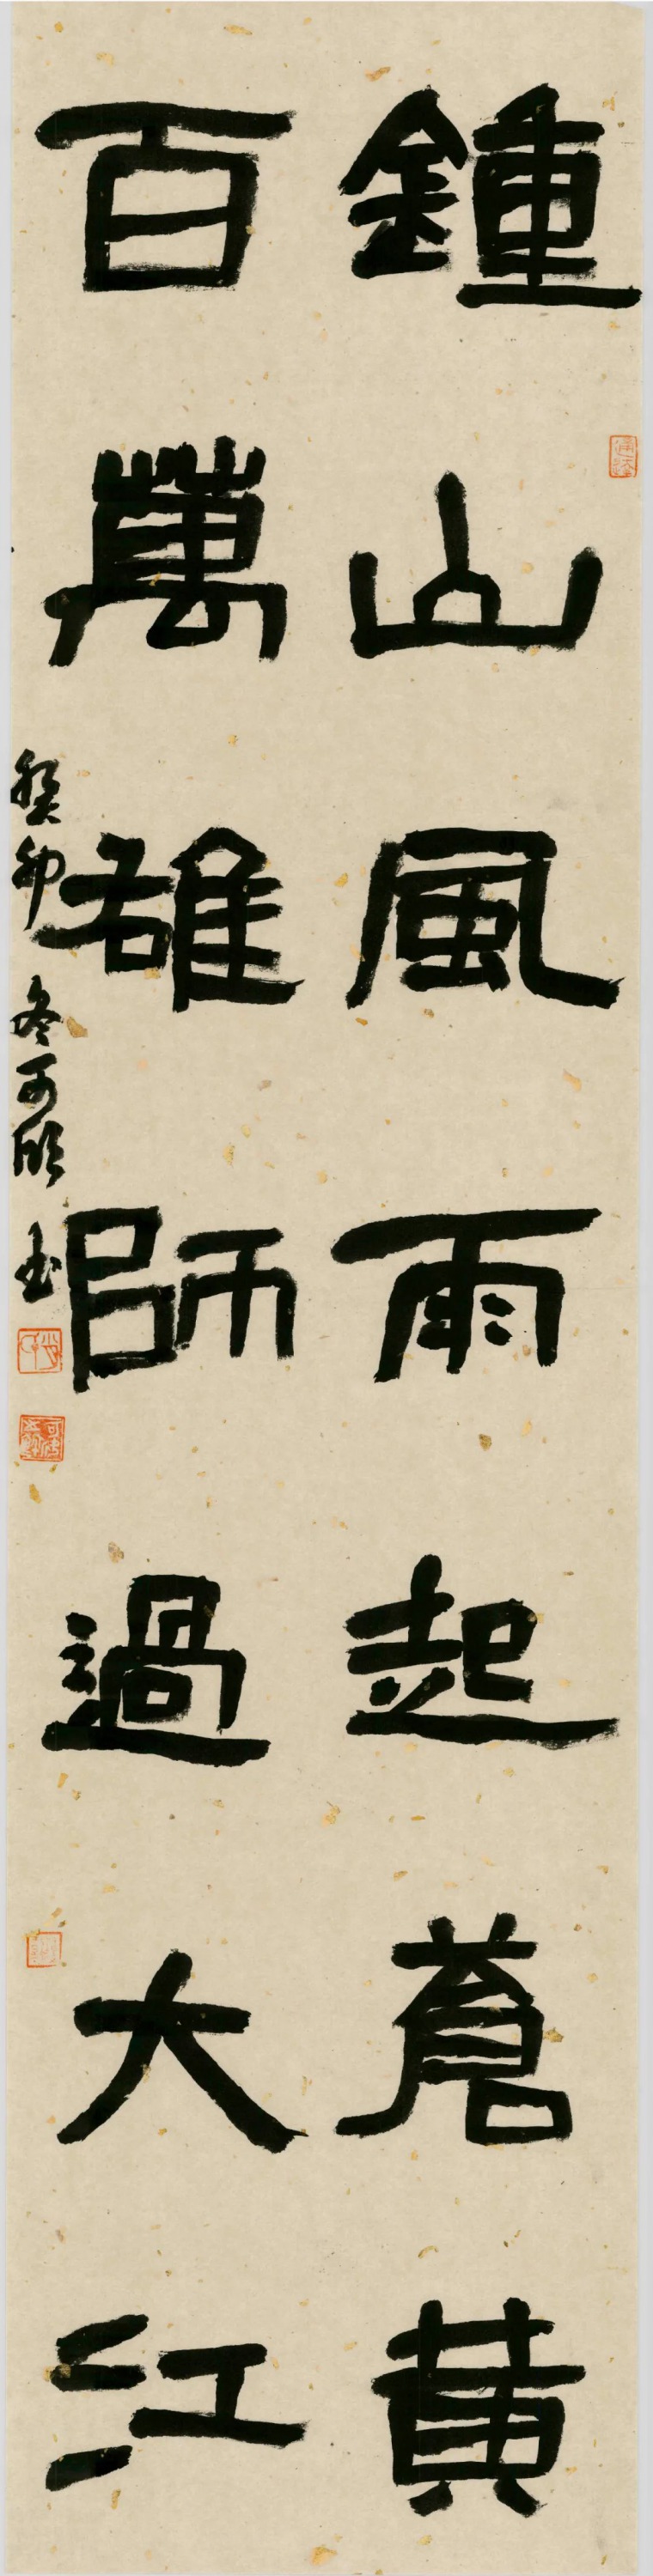 鍾山風雨起蒼黃
百萬雄師過大江
癸卯冬可欣書